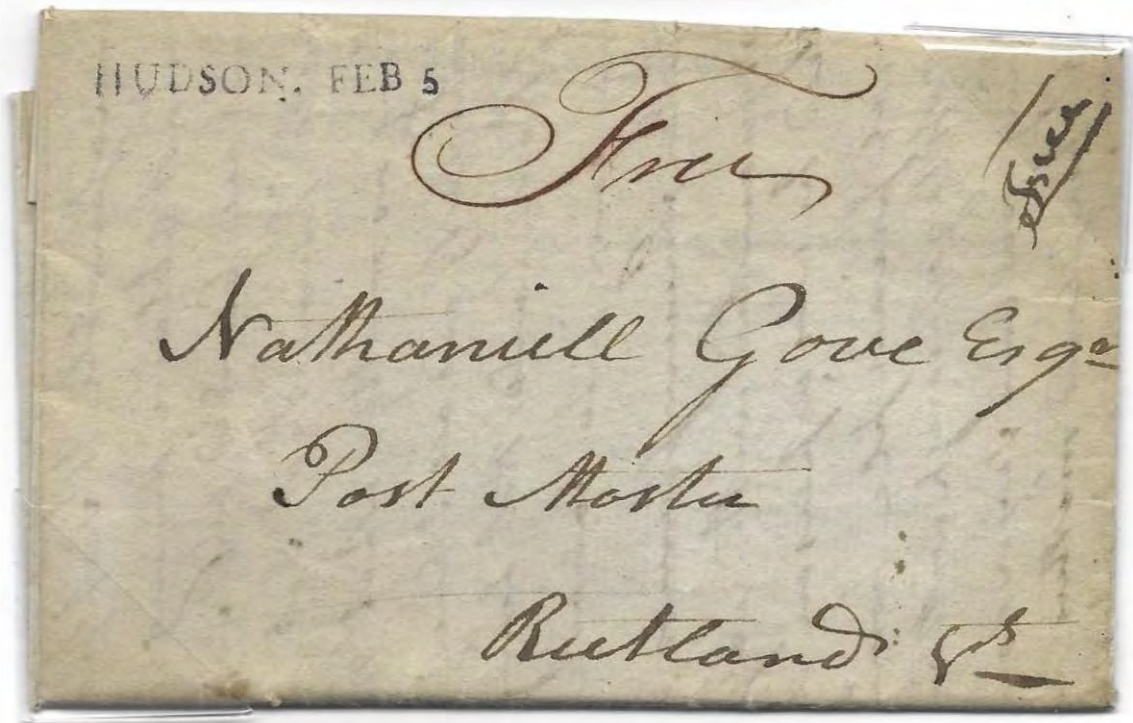 HUDSON. FEB 5
Free
Free
Nathaniell Gove Esqr
Post Master
Rutland Vt